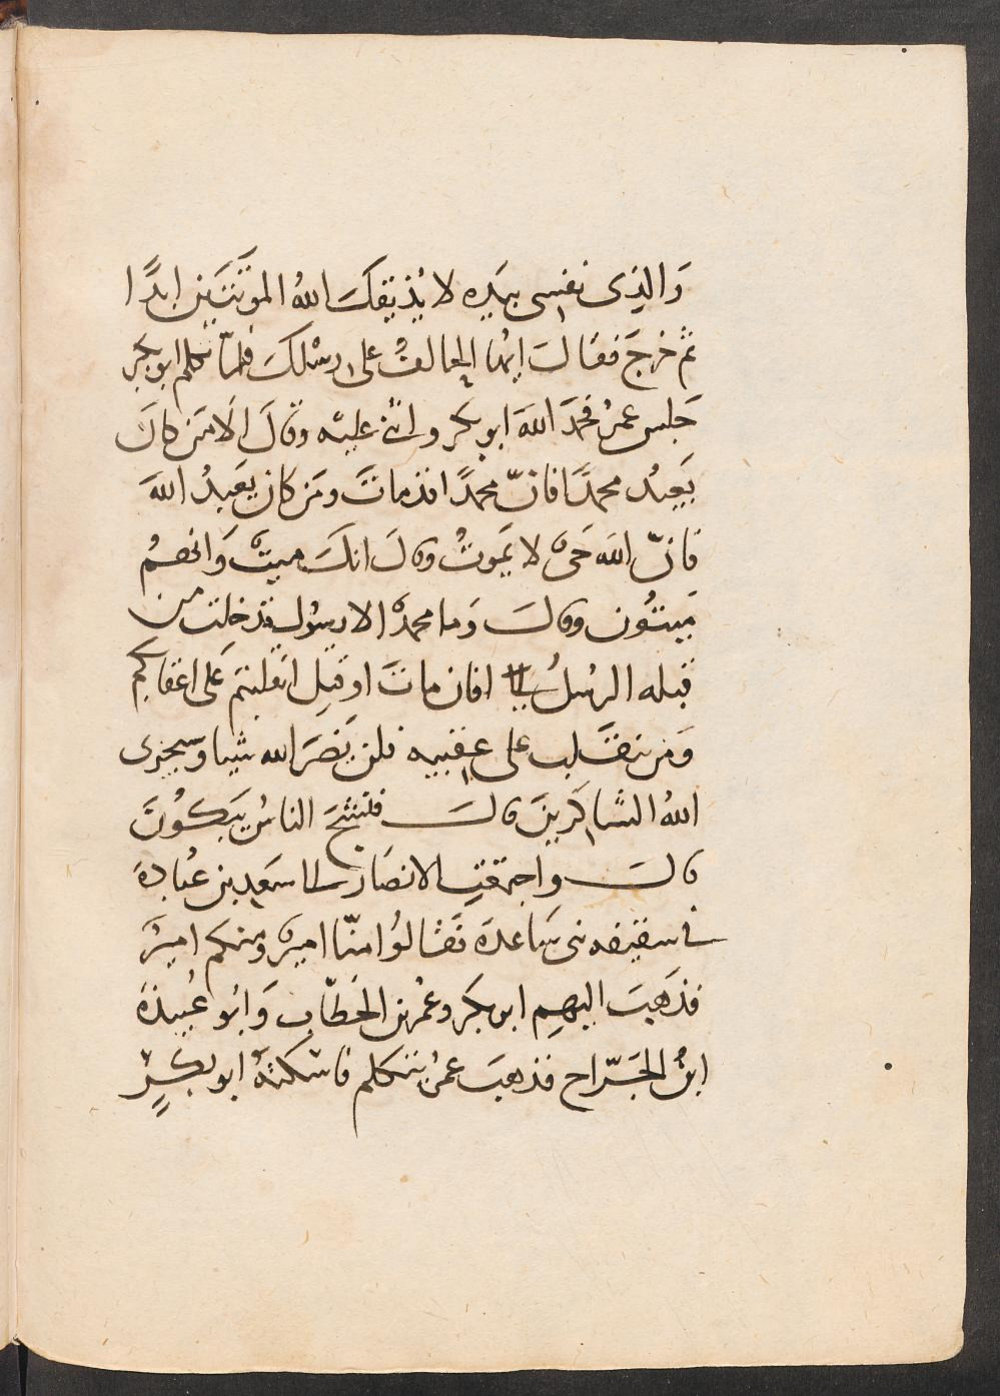 وَالذِى نفسِى بيَدِه لا يُذيقكَ اللهُ الموتتَين ابدًا
ثم خرجَ فقال ايُها الحالفُ على رسْلكَ فلمّا تكلم ابو بكر
جَلس عمرُ فحمدَ اللهَ ابو بكر واثنى عليْه وقالَ الَا مَن كانَ
يَعبدُ محمدًا فانّ محمدًا قد ماتَ ومَن كان يَعبدُ اللهَ
فانّ اللهَ حَىٌّ لا يَموتُ وقالَ انكَ ميتٌ وَانهمُ
ميتُون وقالَ وَما محمدٌ الا رسُول قد خلت من
قبله الرسُلُ افان ماتَ او قتِل انقلبتم عَلى اعقابكم
وَمن ينقَلب على عقبيه فلن يَضرَ الله شيا وسيجزى
اللهُ الشاكرينَ قالَ فنشجَ الناسُ يَبكُونَ
قالَ واجتمَعَتِ الانصَار الى سَعدِ بن عُبادةَ
فى سقيفه بنى سَاعدَة فَقَالوُا منّا اميرٌ ومنكم اميرٌ
فذهبَ اليهِم ابو بكر وعُمر بن الخَطّابِ وَابُو عُبيدَة
ابنُ الجَرّاح فذهبَ عمرُ يتكلم فاسْكتهُ ابو بكرٍ